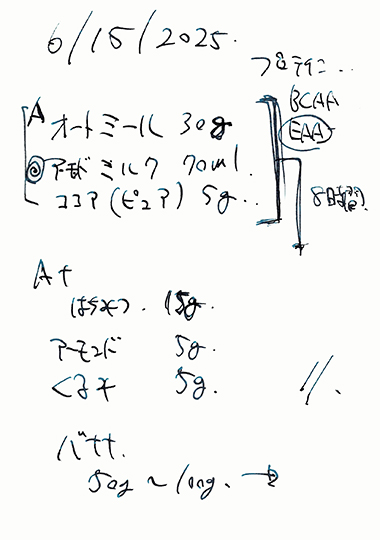 6/15/2025.
プロテイン..
BCAA
EAA
A オートミール 30g
アーモンドミルク 70ml.
ココア(ピュア) 5g..
8時間
A+
はちみつ. 15g.
アーモンド 5g.
くるみ 5g.
バナナ.
50g ~ 100g. →